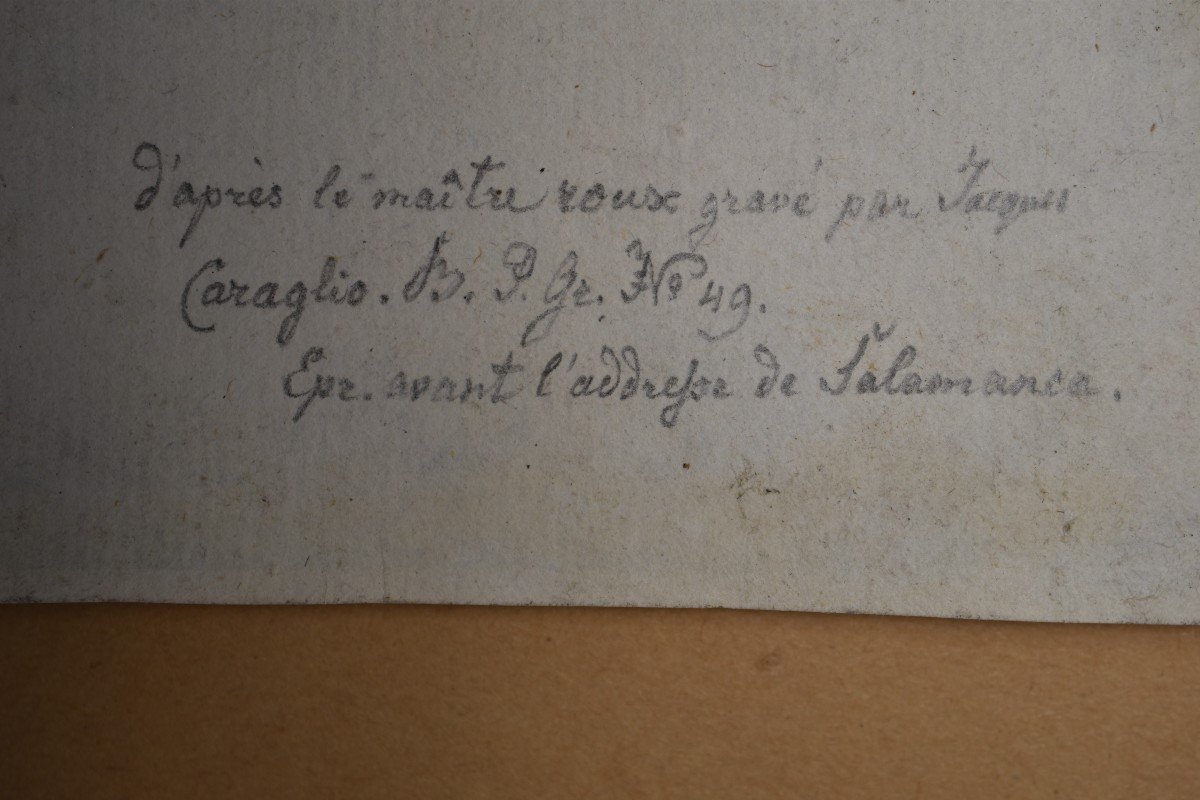 d'après le maître roux gravé par Jacques
Caraglio. B. P. Gr. No 49.
Epr. avant l'addresse de Salamanca.